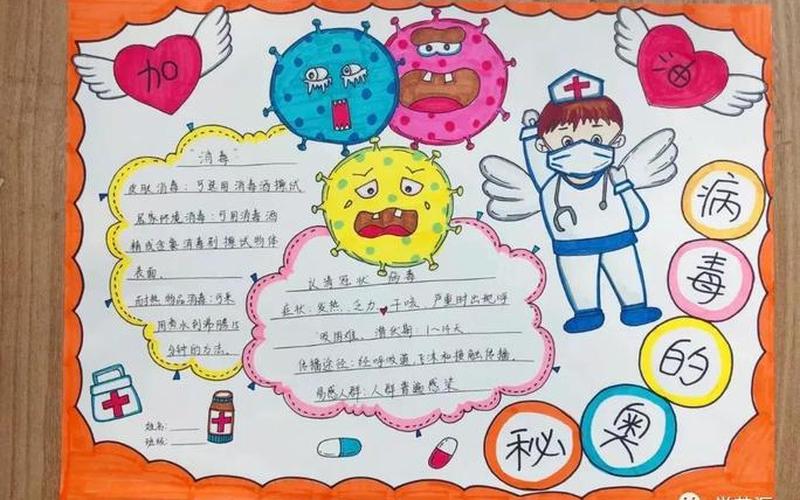 加
油
"消毒"
皮肤消毒:可选用消毒酒擦拭
居家环境消毒:可用消毒酒
精或含氯消毒剂擦拭物体
表面。
耐热物品消毒:可采
用煮水利沸腾15
分钟的方法。
认清冠状病毒
症状:发热、乏力、干咳、严重时出现呼
吸困难、潜伏期:1~14天
传播途径:经呼吸道,飞沫和接触传播。
易感人群:人群普遍感染
姓名:
班级:
病
毒
的
奥
秘